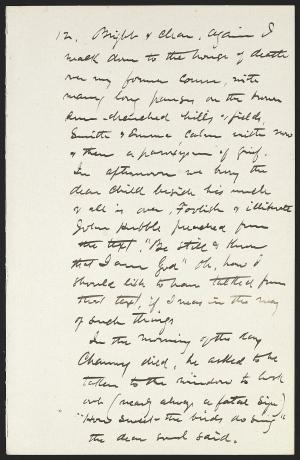 12. Bright & clear. Again I
walk down to the house of death
over my former course, with
many long pauses on the brown
sun-drenched hills & fields.
Smith & Emma calm with now
& then a paroxysm of grief.
In afternoon we bury the
dear child beside his uncle
& all is over. Foolish & illiterate
John Hubble preached from
the text, "Be still & know
that I am God" Oh, how I
should like to have talked from
that text, if I was in the way
of such things
In the morning of the day
Channy died, he asked to be
taken to the window to look
out (nearly always a fatal sign)
"How sweet the birds do sing"
the dear soul said.